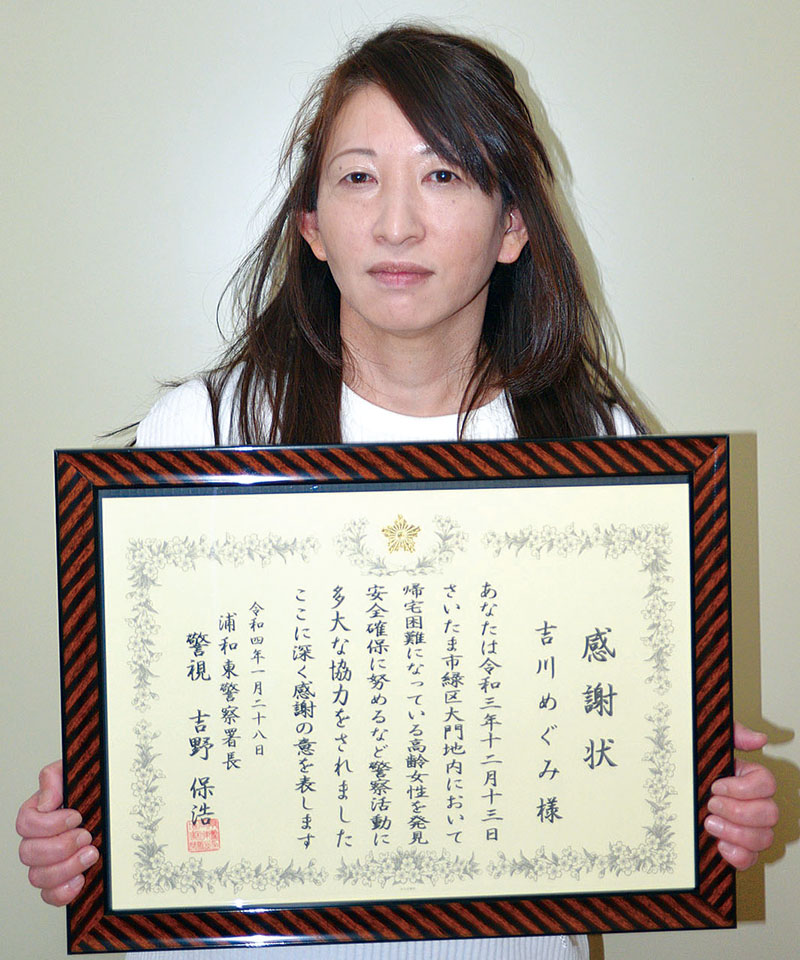 感謝状
吉川めぐみ様
あなたは令和三年十二月十三日
さいたま市緑区大門地内において
帰宅困難になっている高齢女性を発見
安全確保に努めるなど警察活動に
多大な協力をされました
ここに深く感謝の意を表します
令和四年一月二十八日
浦和東警察署長
警視 吉野保浩